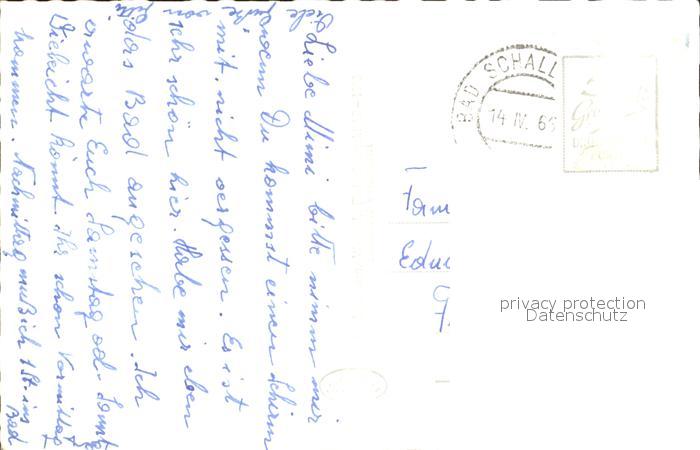 Liebe Mimi bitte nimm mir
wenn Du kommst einen Schirm
mit, nicht vergessen. Es ist
sehr schön hier. Habe mir eben
das Bad angesehen. Ich
erwarte Euch Samstag od. Sonnt
Vieleicht könnt Ihr schon Vormittag
kommen. Nachmittag muß ich 1 St. im
Bad
Viele
BAD SCHALL
14 IV. 63
Fam
Edu
privacy protection
Datenschutz